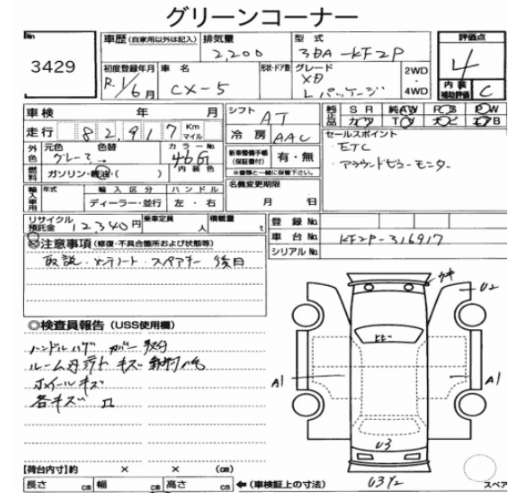 グリーンコーナー
No
3429
車歴(自家用以外は記入) 排気量 2,200
型式 3DA-KF2P
評価点 4
初度登録年月 R.1/6月
車名 CX-5
形状・ドア数
グレード XD Lパッケージ
2WD
4WD
内装補助評価 C
車検 年 月
シフト AT
走行 82,917 Km マイル
冷房 AAC
純正品 SR 純AW PS PW
カワ TV ナビ エアB
外色 元色 グレー 色替 カラーNo 46G
内装色
燃料 ガソリン・軽油・( )
新車整備手帳(保証書付) 有・無
※書類と一緒に保管下さい。
セールスポイント
・ETC
・アラウンドビューモニター
輸入車用 年式 輸入区分 ハンドル
ディーラー・並行 左・右
名義変更期限
月 日
リサイクル預託金 12,340円 乗車定員 人 積載量 t
登録No
車台No KF2P-316917
シリアルNo
◎注意事項(修復・不具合箇所および状態等)
取説・メンテノート・スペアキー 後日
◎検査員報告(USS使用欄)
ハンドルハゲ カバー
ルーム内 キズ
ホイールキズ
各キズ 凹
U2
A1
A1
U3
U3
【荷台内寸】約 × × (cm)
長さ cm 幅 cm 高さ cm ←(車検証上の寸法)
スペア